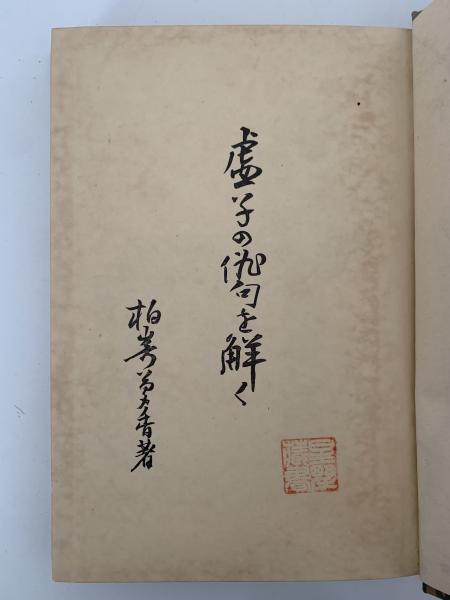 虚子の俳句を解く
柏崎夢香著
藏書